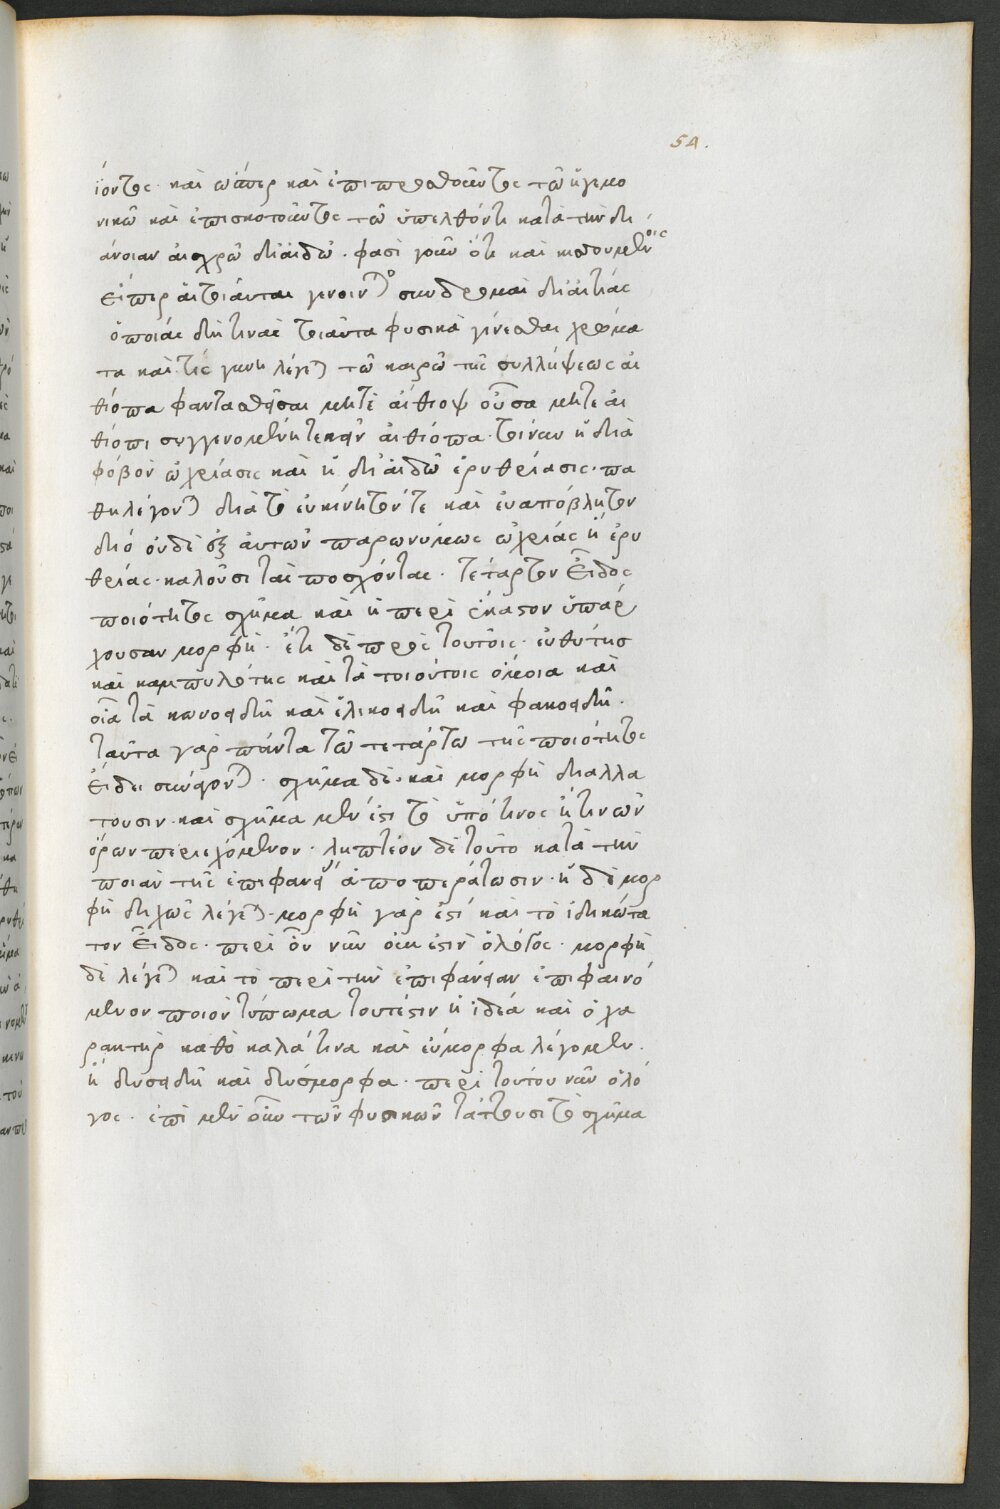 54.
ἰόντες· καὶ ὡσπερ καὶ ἐπιπροσθοῦντες τῶ ἡγεμο
νικῶ καὶ ἐπισκοτοῦντες τῶ ὑπελθόντι κατὰ τὴν δι
άνοιαν αἰσχρῶ δι αἰδῶ· φασὶ γοῦν ὅτι καὶ κυουμένοις
εἴπερ αἰτιάνται γένοιντο συνδρομαὶ δι αἰτίας
ὁποίας δή τινας τοιαῦτα φυσικὰ γίνεσθαι χρώμα
τα καὶ τὶς γυνὴ λέγεται τῶ καιρῶ τῆς συλλήψεως αἰ
θίοπα φαντασθῆσαι μήτε αἰθίοψ οὖσα μήτε αἰ
θίοπι συγγενομένη τεκεῖν αἰθίοπα· τοίνυν ἡ διὰ
φόβον ὠχρίασις καὶ ἡ δι αἰδῶ ἐρυθρίασις· πά
θη λέγονται διά τὸ εὐκίνητόν τε καὶ εὐαπόβλητον
διό οὐδὲ ἐξ αὐτῶν παρωνύμως ὠχρίας ἢ ἐρυ
θρίας· καλοῦσι τὰς ποσχόντας· τέταρτον εἶδος
ποιότητος σχῆμα καὶ ἡ περὶ ἕκαστον ὑπάρ
χουσαν μορφὴ· ἔτι δὲ πρὸς τούτοις· εὐθύτης
καὶ καμπυλότης καὶ τὰ τοιούτοις ὅμοια καὶ
οἷα τὰ κωνοειδῆ καὶ ἑλικοειδῆ καὶ φακοειδῆ·
ταῦτα γὰρ πάντα τῶ τετάρτω τῆς ποιότητος
εἴδει συνάγονται· σχῆμα δὲ· καὶ μορφὴ διαλλά
τουσιν· καὶ σχῆμα μέν ἐστι τὸ ὑπό τινος ἤ τινων
ὅρων περιεχόμενον· ληπτέον δὲ τοῦτο κατὰ τὴν
ποιαν τῆς ἐπιφανείας ἀποπεράτωσιν· ἡ δὲ μορ
φὴ διχῶς λέγεται· μορφὴ γάρ ἐστι καὶ τὸ ἰδικώτα
τον εἶδος· περὶ οὗ νῦν οὐκ ἔστιν ὁ λόγος· μορφὴ
δὲ λέγεται καὶ τὸ περὶ τὴν ἐπιφάνειαν ἐπιφαινό
μενον ποιὸν τύπωμα τουτέστιν ἡ ἰδέα καὶ ὁ χα
ρακτὴρ καθὸ καλά τινα καὶ εὔμορφα λέγομεν·
ἢ δυσειδῆ καὶ δύσμορφα· περὶ τούτου νῦν ὁ λό
γος· ἐπὶ μὲν οὖν τῶν φυσικῶν τάττουσι τὸ σχῆμα